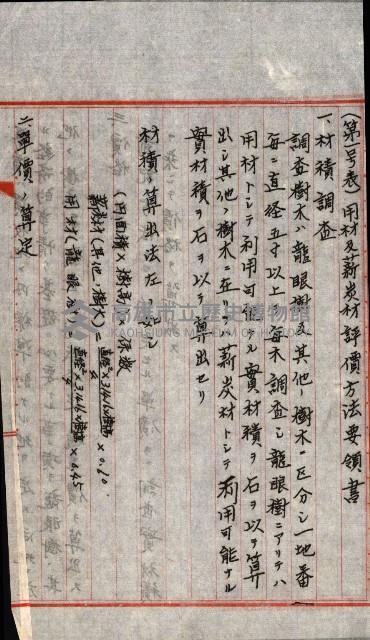 (第一号表)用材及薪炭材評價方法要領書
一、材積調査
調査樹木ハ龍眼樹及其他ノ樹木ニ区分シ一地番
毎ニ直径五寸以上ノ毎木調査シ龍眼樹ニアリテハ
用材トシテ利用可能ナル實材積ヲ石ヲ以テ算
出シ其他ノ樹木ニ在リ薪炭材トシテ利用可能ナル
實材積ヲ石ヲ以テ算出セリ
材積ノ算出法左ノ如シ
(円面積×樹高)×係数
薪炭材(其他ノ樹木)=直径²×3.1416×樹高/4×0.60
用材(龍眼樹)=直径²×3.1416×樹高/4×0.45
二、單價ノ算定
高雄市立歷史博物館
KAOHSIUNG MUSEUM OF HISTORY